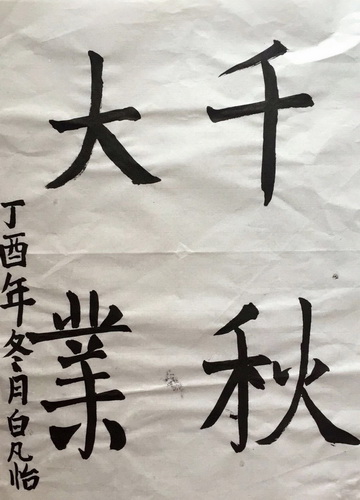 千秋
大業
丁酉年冬月白凡怡